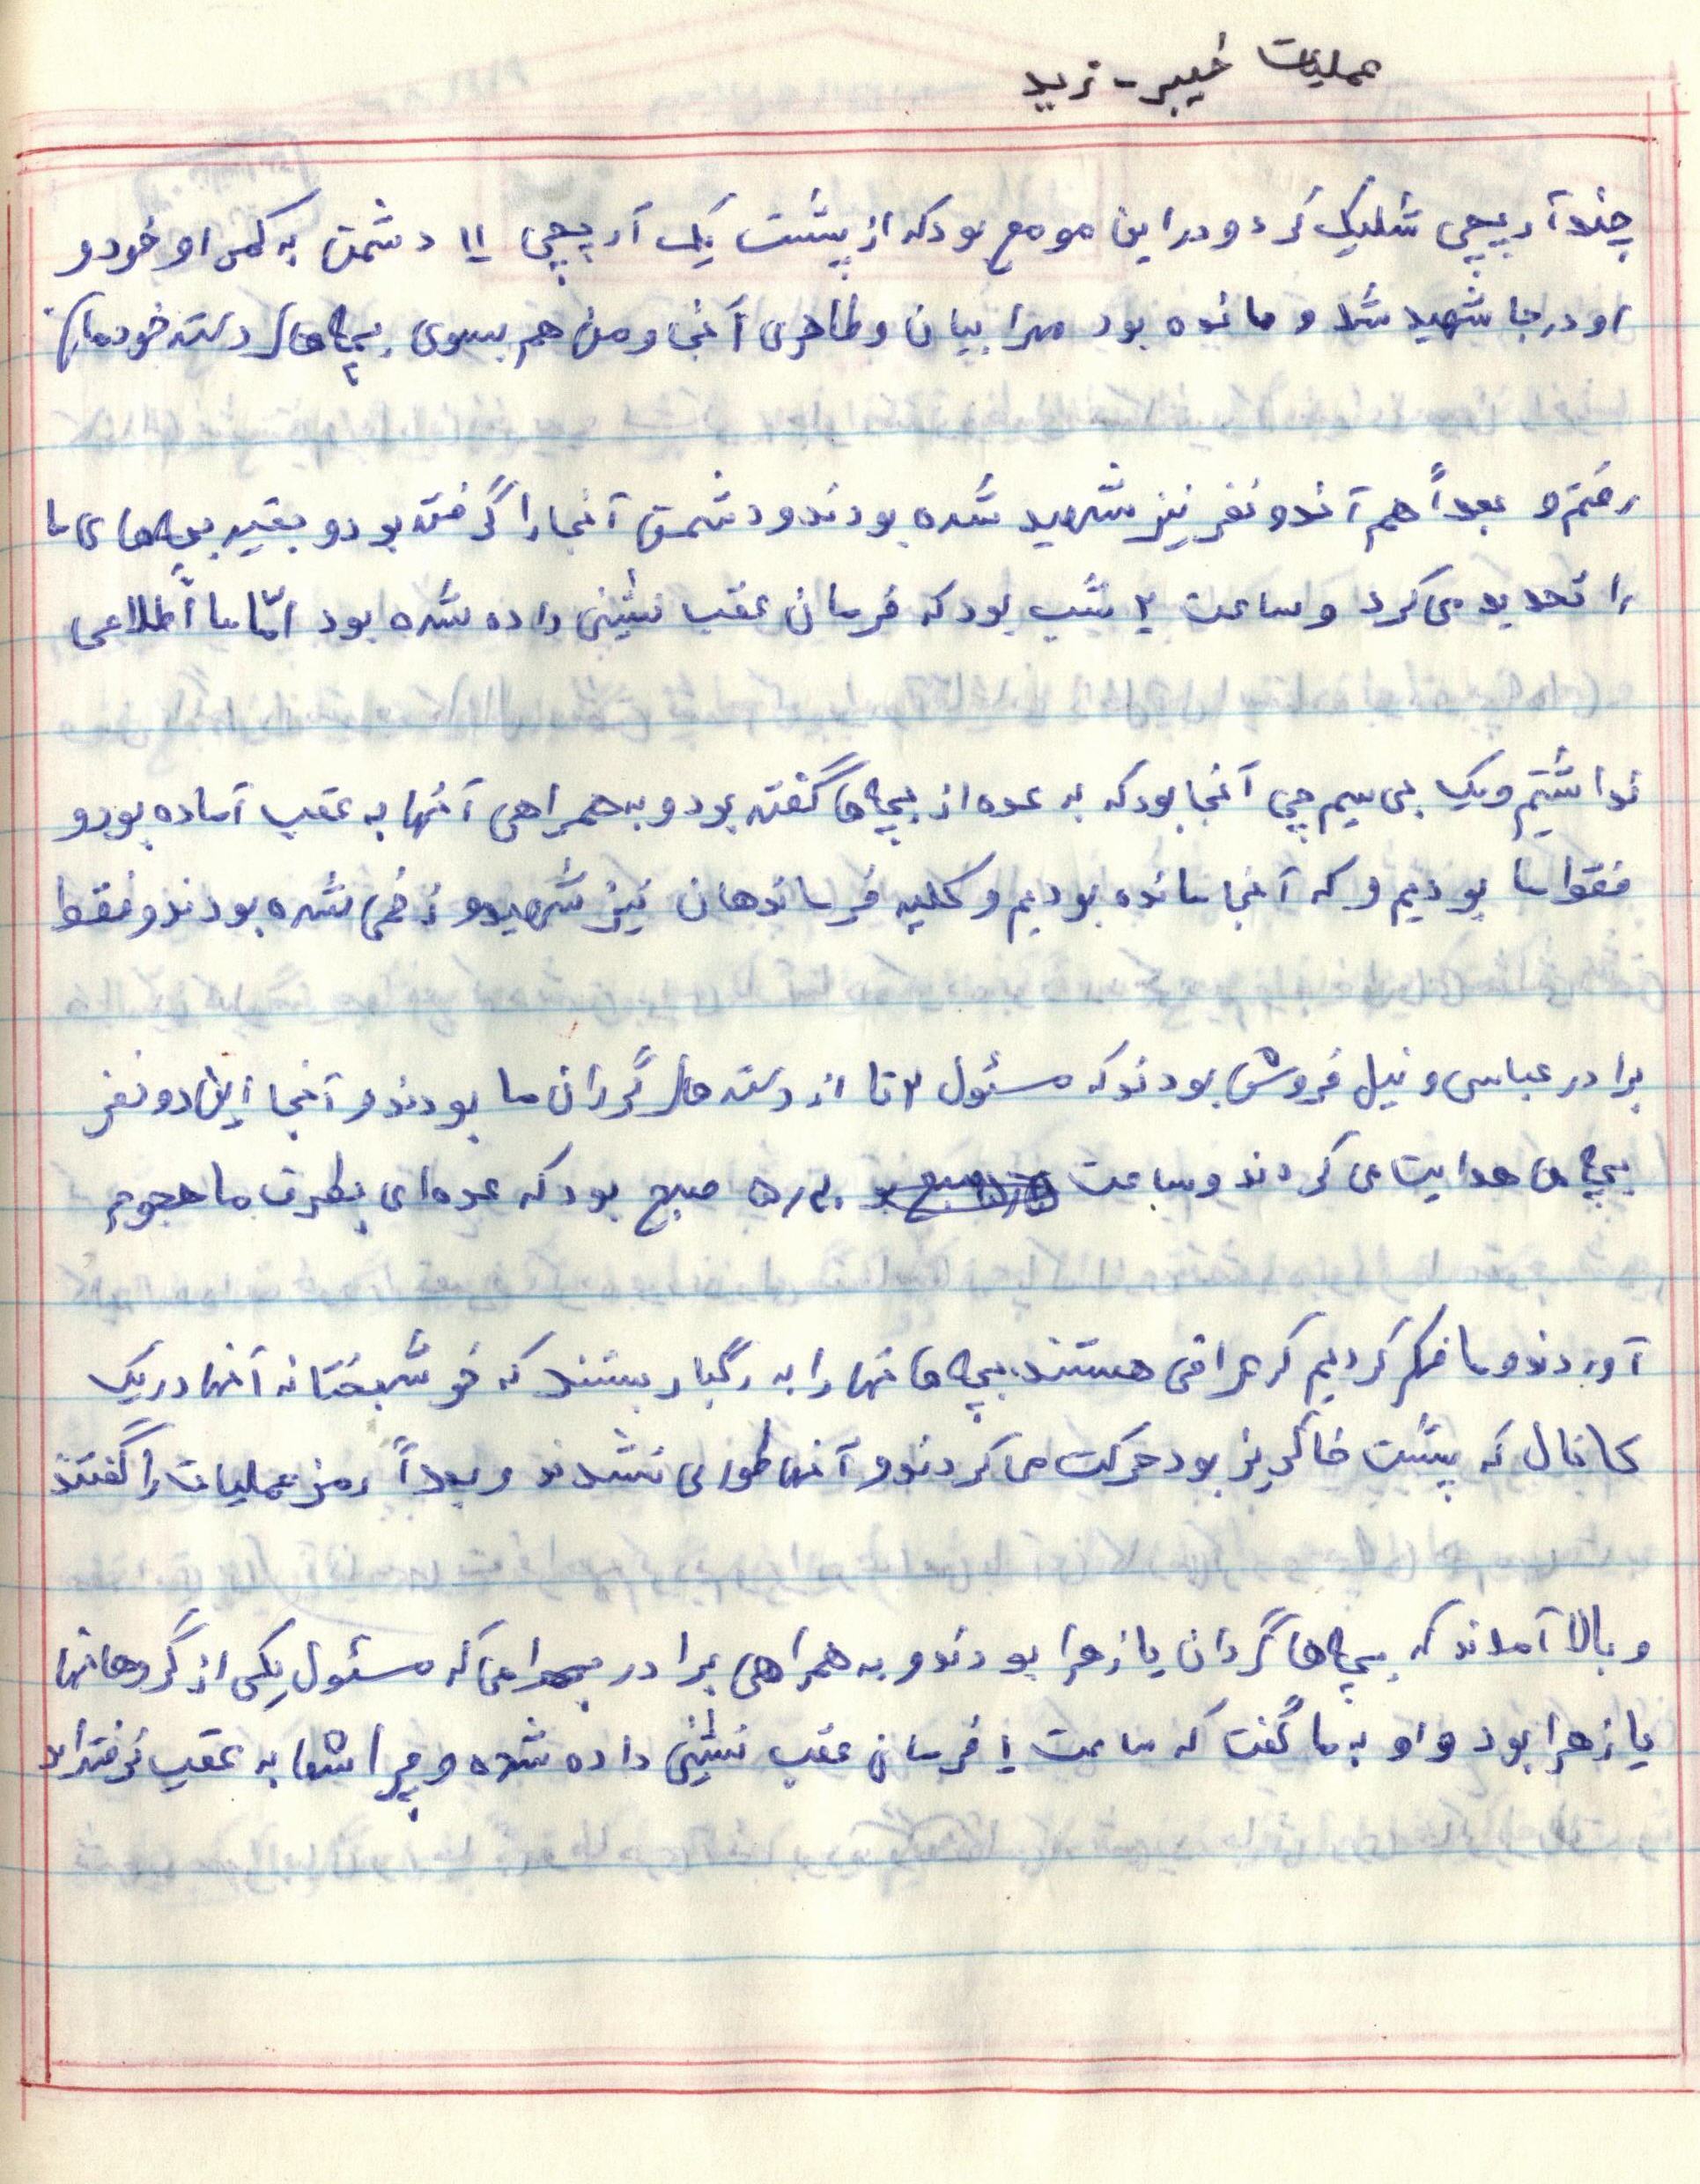 عملیات خیبر - زبید
چند آرپیجی شلیک کرد و در این موقع بود که از پشت یک آرپیجی ۱۱ دشمن به کمر او خورد و
او در جا شهید شد و مانده بود مهرابیان و طاهری آنجا و من هم بسوی بچه‌های دسته خودمان
رفتم و بعداً هم آندو نفر نیز شهید شده بودند و دشمن آنجا را گرفته بود و بقیه بچه‌های ما
را تحدید می‌کرد و ساعت ۲ شب بود که فرمان عقب نشینی داده شده بود امّا ما اطلاعی
نداشتیم و یک بی‌سیم چی آنجا بود که به عده از بچه‌ها گفته بود و به همراهی آنها به عقب آماده بود و
فقط ما بودیم و که آنجا مانده بودیم و کلیه فرماندهان نیز شهید و زخمی شده بودند و فقط
برادر عباسی و نیل فروش بودند که مسئول ۲ تا از دسته‌های گردان ما بودند و آنجا این دو نفر
بچه‌ها هدایت می‌کردند و ساعت ۵/۳۰ صبح بود که عده‌ای بطرف ما هجوم
آوردند و ما فکر کردیم که عراقی هستند، بچه‌ها آنها را به رگبار بستند که خوشبختانه آنها در یک
کانال که پشت خاکریز بود حرکت می‌کردند و آنها طوری نشدند و بعداً رمز عملیات را گفتند
و بالا آمدند که بچه‌های گردان یا زهرا بودند و به همراهی برادر که مسئول یکی از گروهانها
یا زهرا بود و او به ما گفت که ساعت ۱ فرمان عقب نشینی داده شده و چرا شما به عقب نرفته‌اید